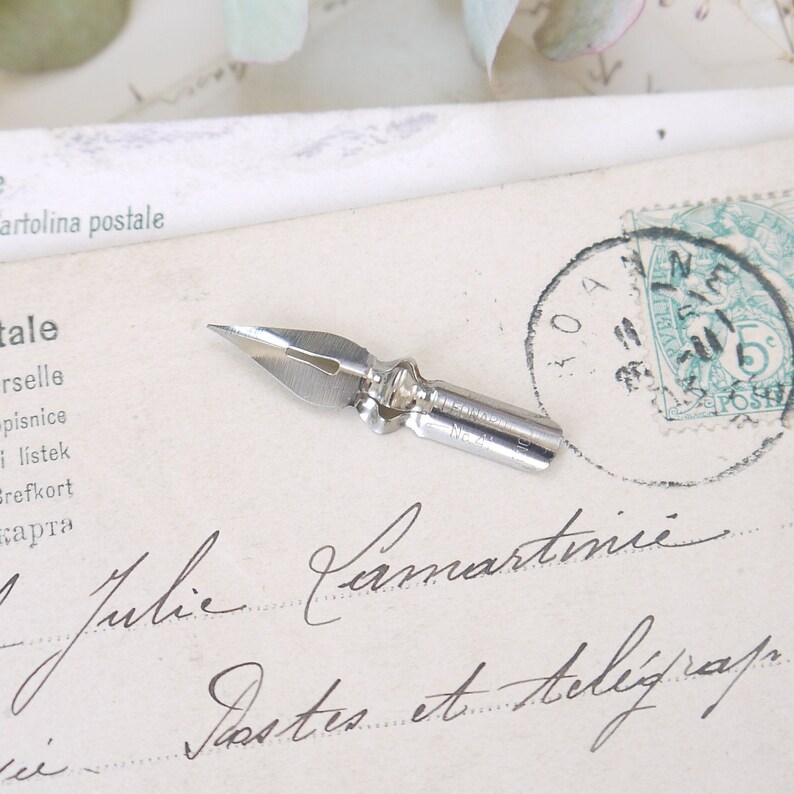 artolina postale
tale
erselle
opisnice
i lístek
Brefkort
карта
ROANNE
5c
POST
LEONARDT
No. 4
Julie Lamartinie
Postes et télégrap